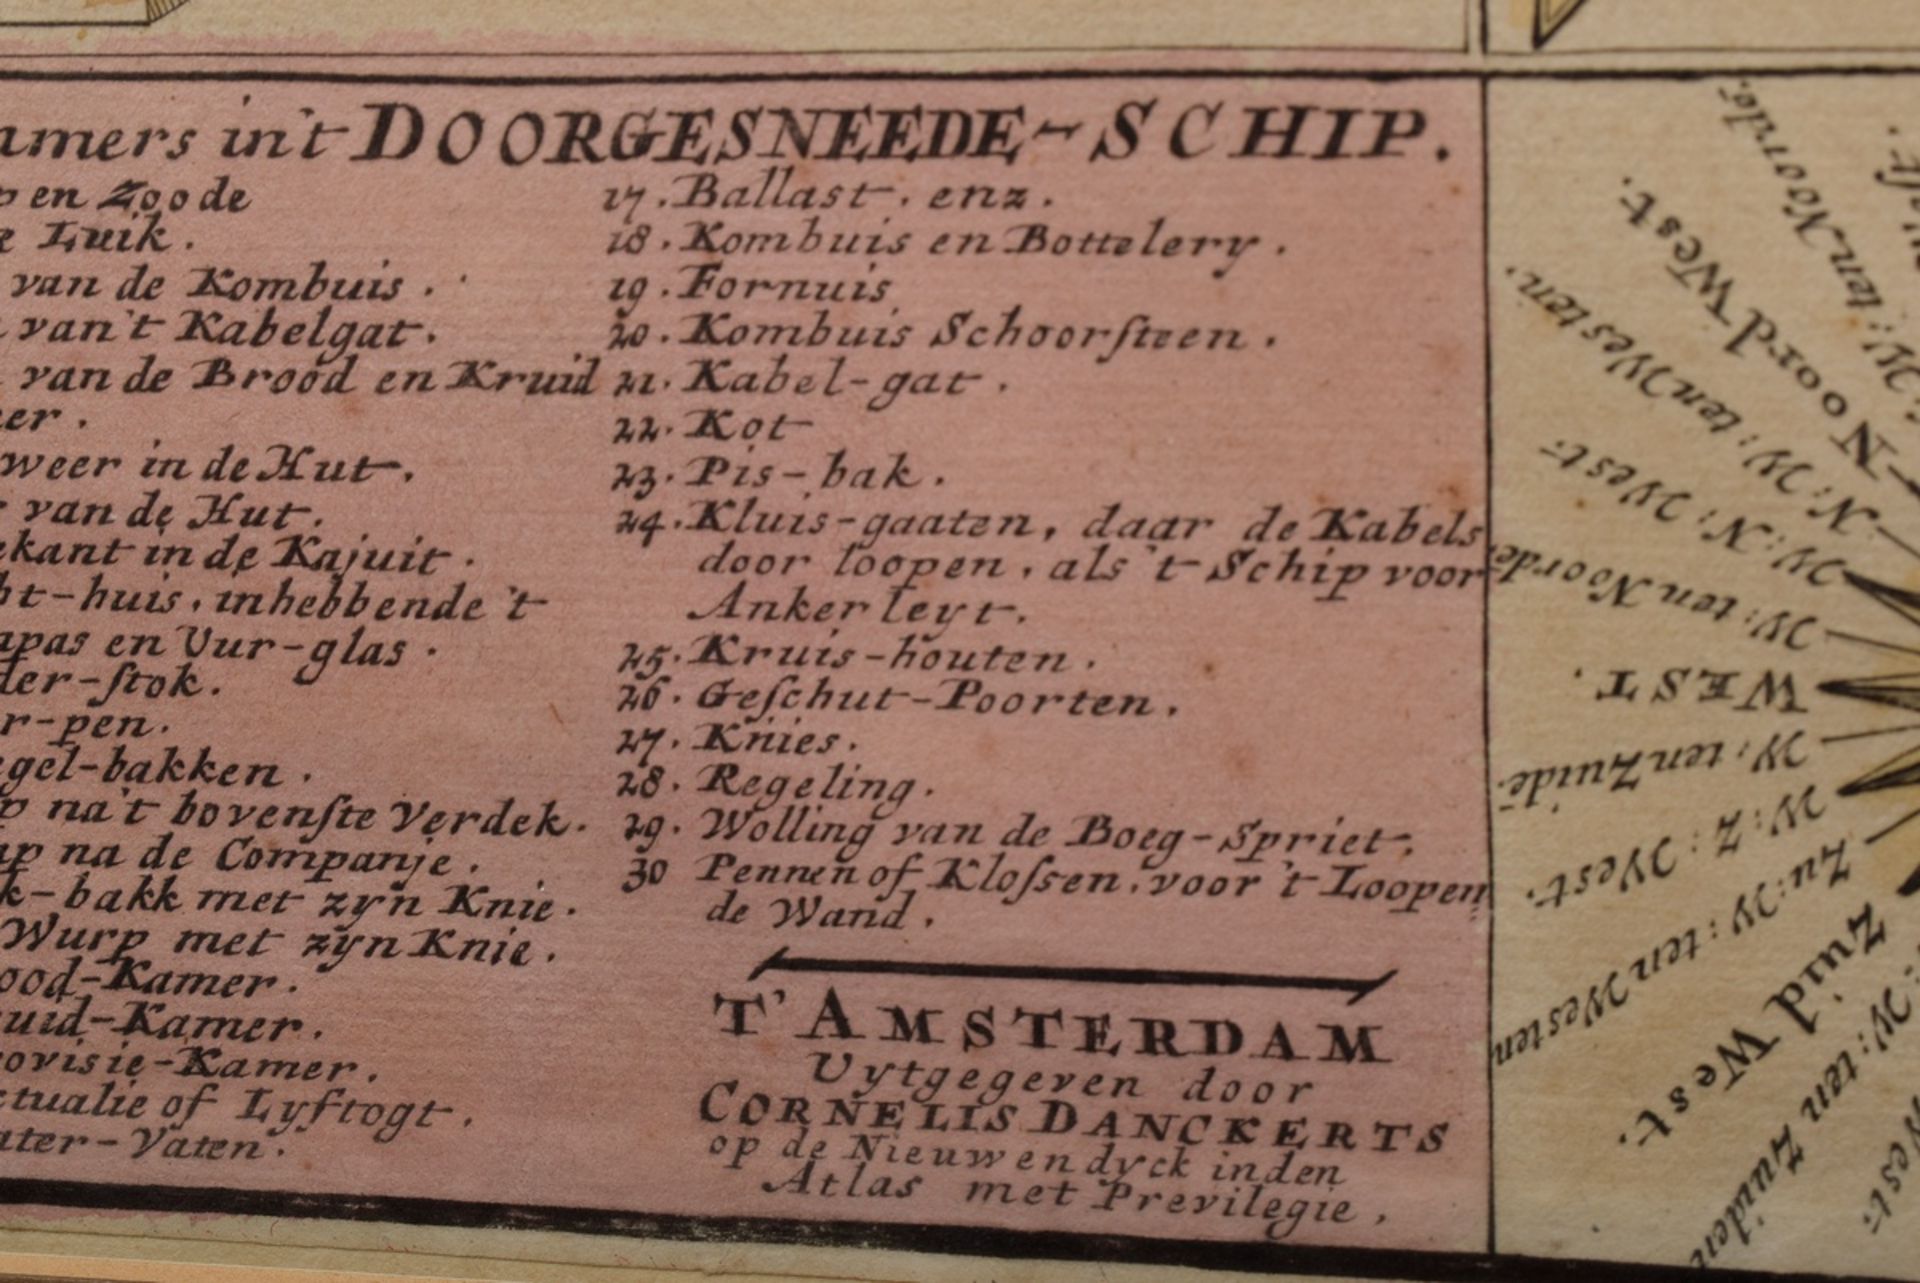 in't DOORGESNEEDE-SCHIP.
en Zoode
Luik.
van de Kombuis.
van't Kabelgat.
van de Brood en Kruid
weer in de Hut.
van de Hut.
in de Kajuit.
ht-huis, inhebbende 't
apas en Uur-glas.
der-ſtok.
r-pen.
gel-bakken.
na't bovenſte Verdek.
ap na de Companje.
k-bakk met zyn Knie.
Wurp met zyn Knie.
ood-Kamer.
uid-Kamer.
ovisie-Kamer.
ctualie of Lyftogt.
ater-Vaten.
17. Ballast, enz.
18. Kombuis en Bottelery.
19. Fornuis
20. Kombuis Schoorſteen.
21. Kabel-gat.
22. Kot
23. Pis-bak.
24. Kluis-gaaten, daar de Kabels
door loopen, als 't Schip voor
Anker leyt.
25. Kruis-houten.
26. Geſchut-Poorten.
27. Knies.
28. Regeling.
29. Wolling van de Boeg-Spriet.
30 Pennen of Kloſsen, voor 't Loopen
de Wand.
T' AMSTERDAM
Uytgegeven door
CORNELIS DANCKERTS
op de Nieuwendyck inden
Atlas met Previlegie,
ten Noorde.
Noord West.
N: W: ten Westen.
W: N: West.
W: ten Noorde.
WEST.
W: ten Zuide.
W: Z: West.
Zu: W: ten Westen
Zuid West.
W: ten Zuiden